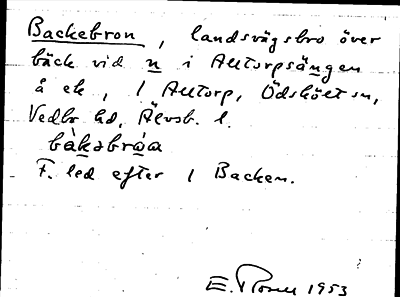 Backebron, landsvägsbro över
bäck vid n i Alltorpsängen
å ek, 1 Alltorp, Ödskölt sn,
Vedbo hd, Älvsb. l.
bàkabrǻa
F. led efter 1 Backen.
E. 1953